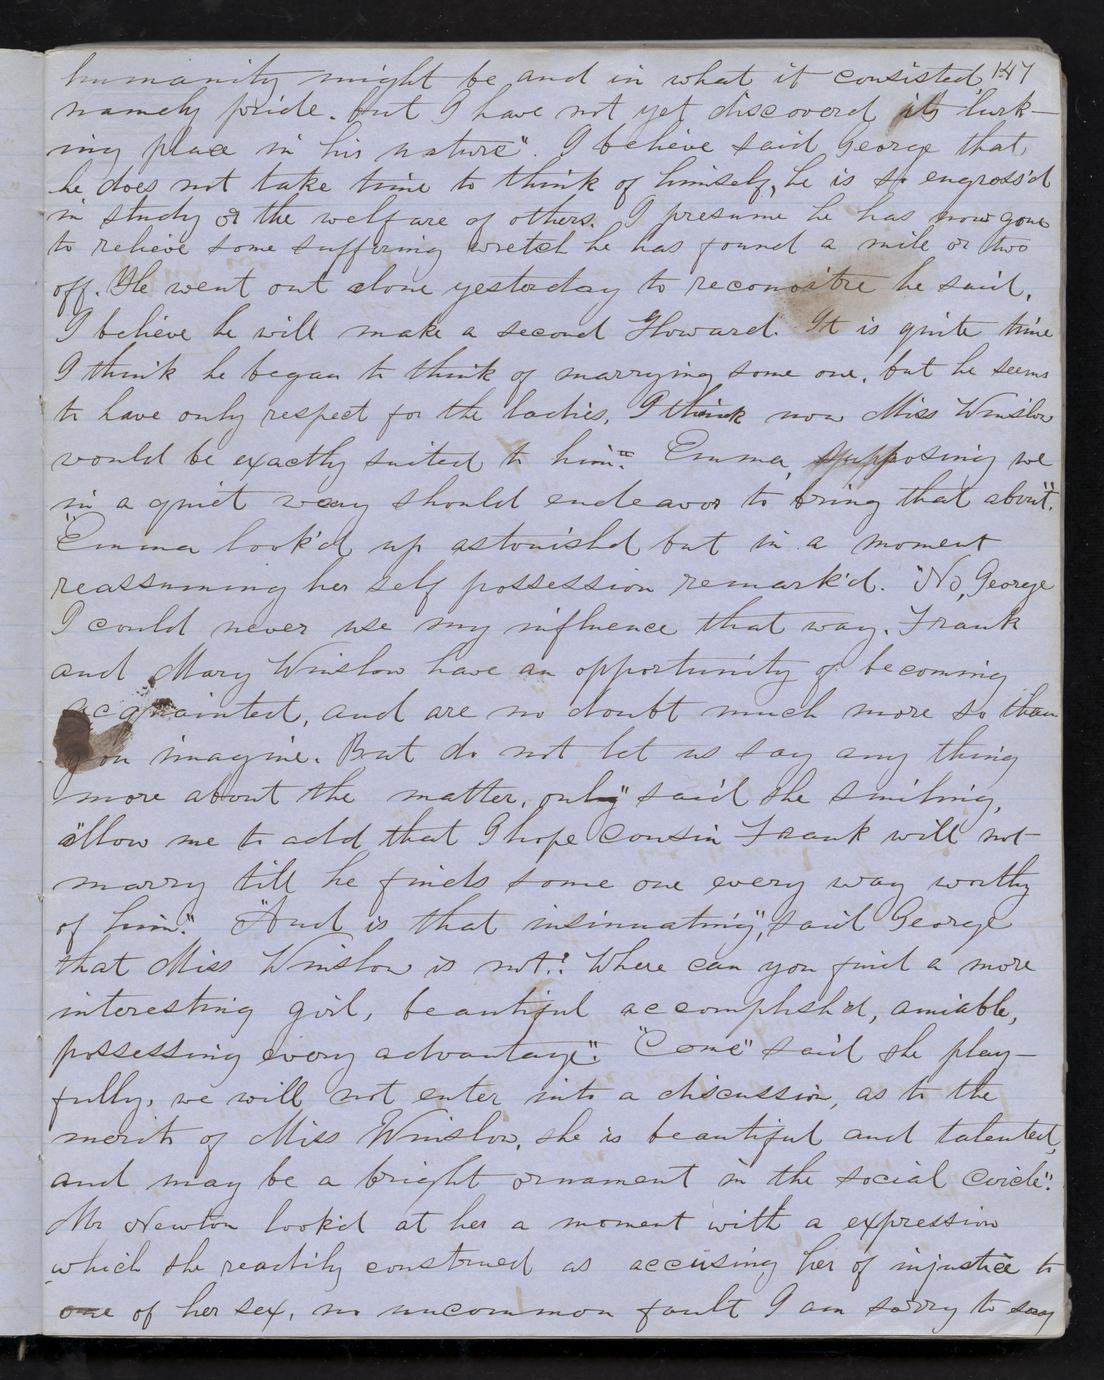 humanity might be and in what it consisted, 147
namely pride. but I have not yet discoverd its lurk-
ing place in his nature". I believe said George that
he does not take time to think of himself, he is so engross'd
in study or the welfare of others. I presume he has now gone
to relieve some suffering wretch he has found a mile or two
off. He went out alone yesterday to reconoitre he said,
I believe he will make a second Howard. It is quite time
I think he began to think of marrying some one, but he seems
to have only respect for the ladies, I think now Miss Winslow
would be exactly suited to him." Emma, supposing we
in a quiet way should endeavor to bring that about".
"Emma look'd up astonishd but in a moment
reassuming her self possession remark'd. "No, George
I could never use my influence that way. Frank
and Mary Winslow have an opportunity of becoming
acquainted, and are no doubt much more so than
you imagine. But do not let us say any thing
more about the matter, only" said she smiling,
"allow me to add that I hope cousin Frank will not
marry till he finds some one every way worthy
of him." "And is that insinuating", said George
that Miss Winslow is not!" Where can you find a more
interesting girl, beautiful accomplish'd, amiable,
possessing every advantage". "Come" said she play-
fully, we will not enter into a discussion, as to the
merits of Miss Winslow, she is beautiful and talented,
and may be a bright ornament in the social circle".
Mr Newton look'd at her a moment with a expression
which she readily construed as accusing her of injustice to
one of her sex, no uncommon fault I am sorry to say